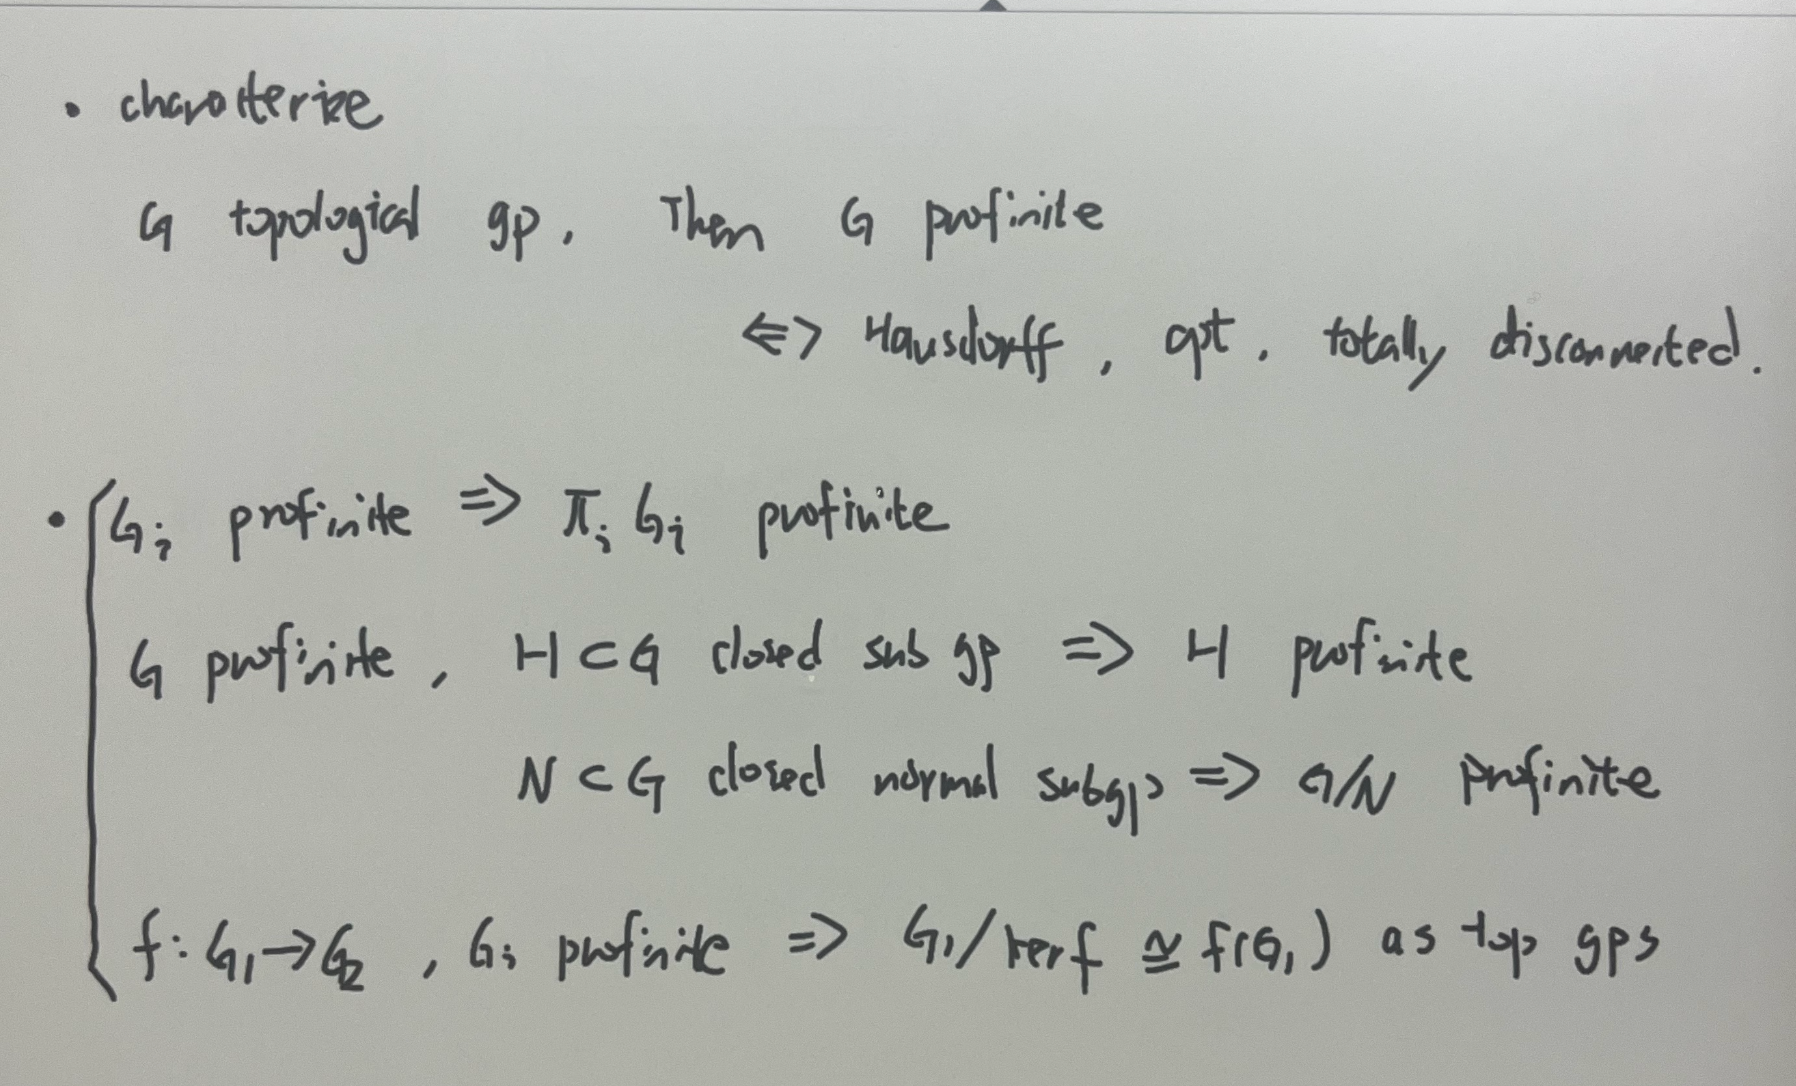 • characterize
G topological gp, Then G profinite
⇔ Hausdorff, cpt, totally disconnected.
• Gᵢ profinite ⇒ πᵢ Gᵢ profinite
G profinite, H⊂G closed sub gp ⇒ H profinite
N⊂G closed normal subgp ⇒ G/N profinite
f: G₁→G₂, Gᵢ profinite ⇒ G₁/ker f ≅ f(G₁) as top gps